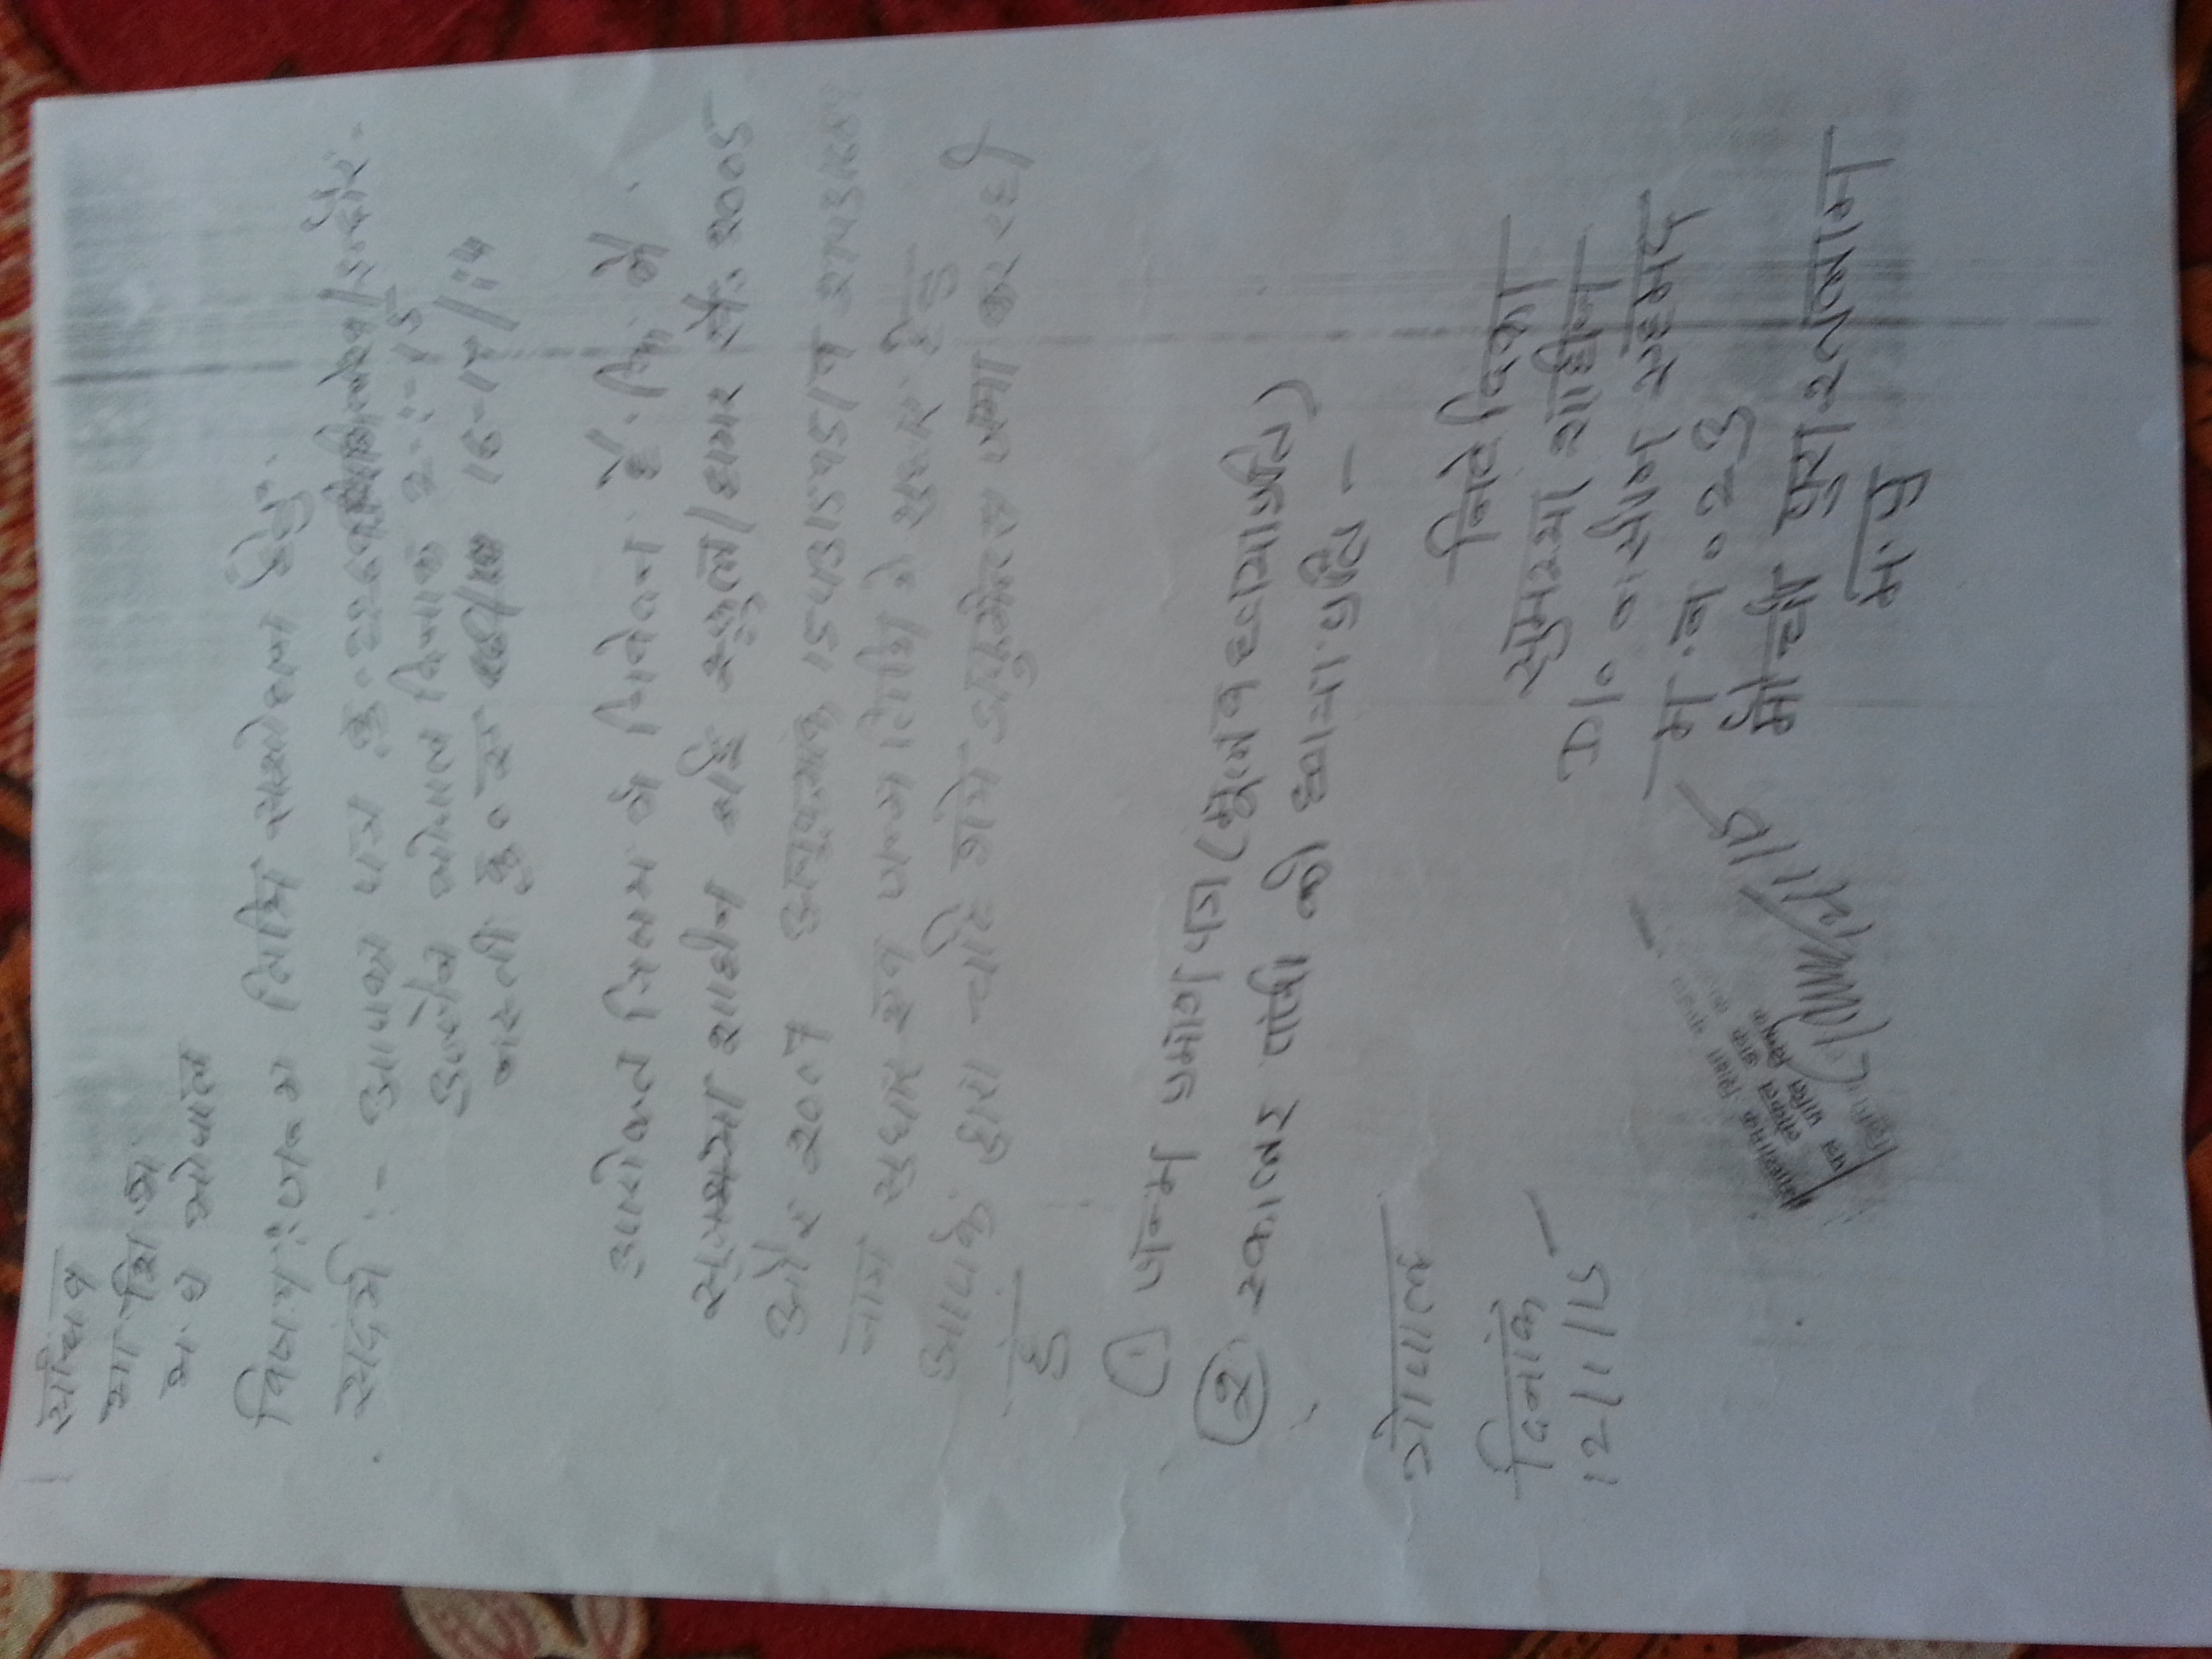 सचिव
मा शि म
म. प्र भोपाल
विषय :- जन्म तिथि संशोधन हेतु.
संदर्भ :- आपका पत्र क्र. /इन्दौर-
उज्जैन भोपाल दिनांक 2-1-15
नस्ती क्र० 16-17/14
उपरोक्त विषय में निवेदन है. कि मैं
सुमय्या शाहीन हाई स्कूल/हायर सै. 2005
और 2007 अनुक्रमांक 15431595/व
नाम सुधार एंव जन्म तिथि में सुधार हेतु
आपके द्वारा चाहे गये डाकुमेन्टस जमा कर रही
हुं
(1) जन्म प्रमाण पत्र (मूल व छायाप्रति)
(2) स्कालर पंजी की छाया प्रति -
भोपाल
दिनांक
12/1/15
निवेदिका
सुमय्या शाहीन
D/o नसीम एहमद
म.न.23
मोची पुरा रतलाम
म.प्र
माध्यमिक शिक्षा मण्डल
लोकल डाक
पत्र प्राप्ति दिनांक
12/1/15